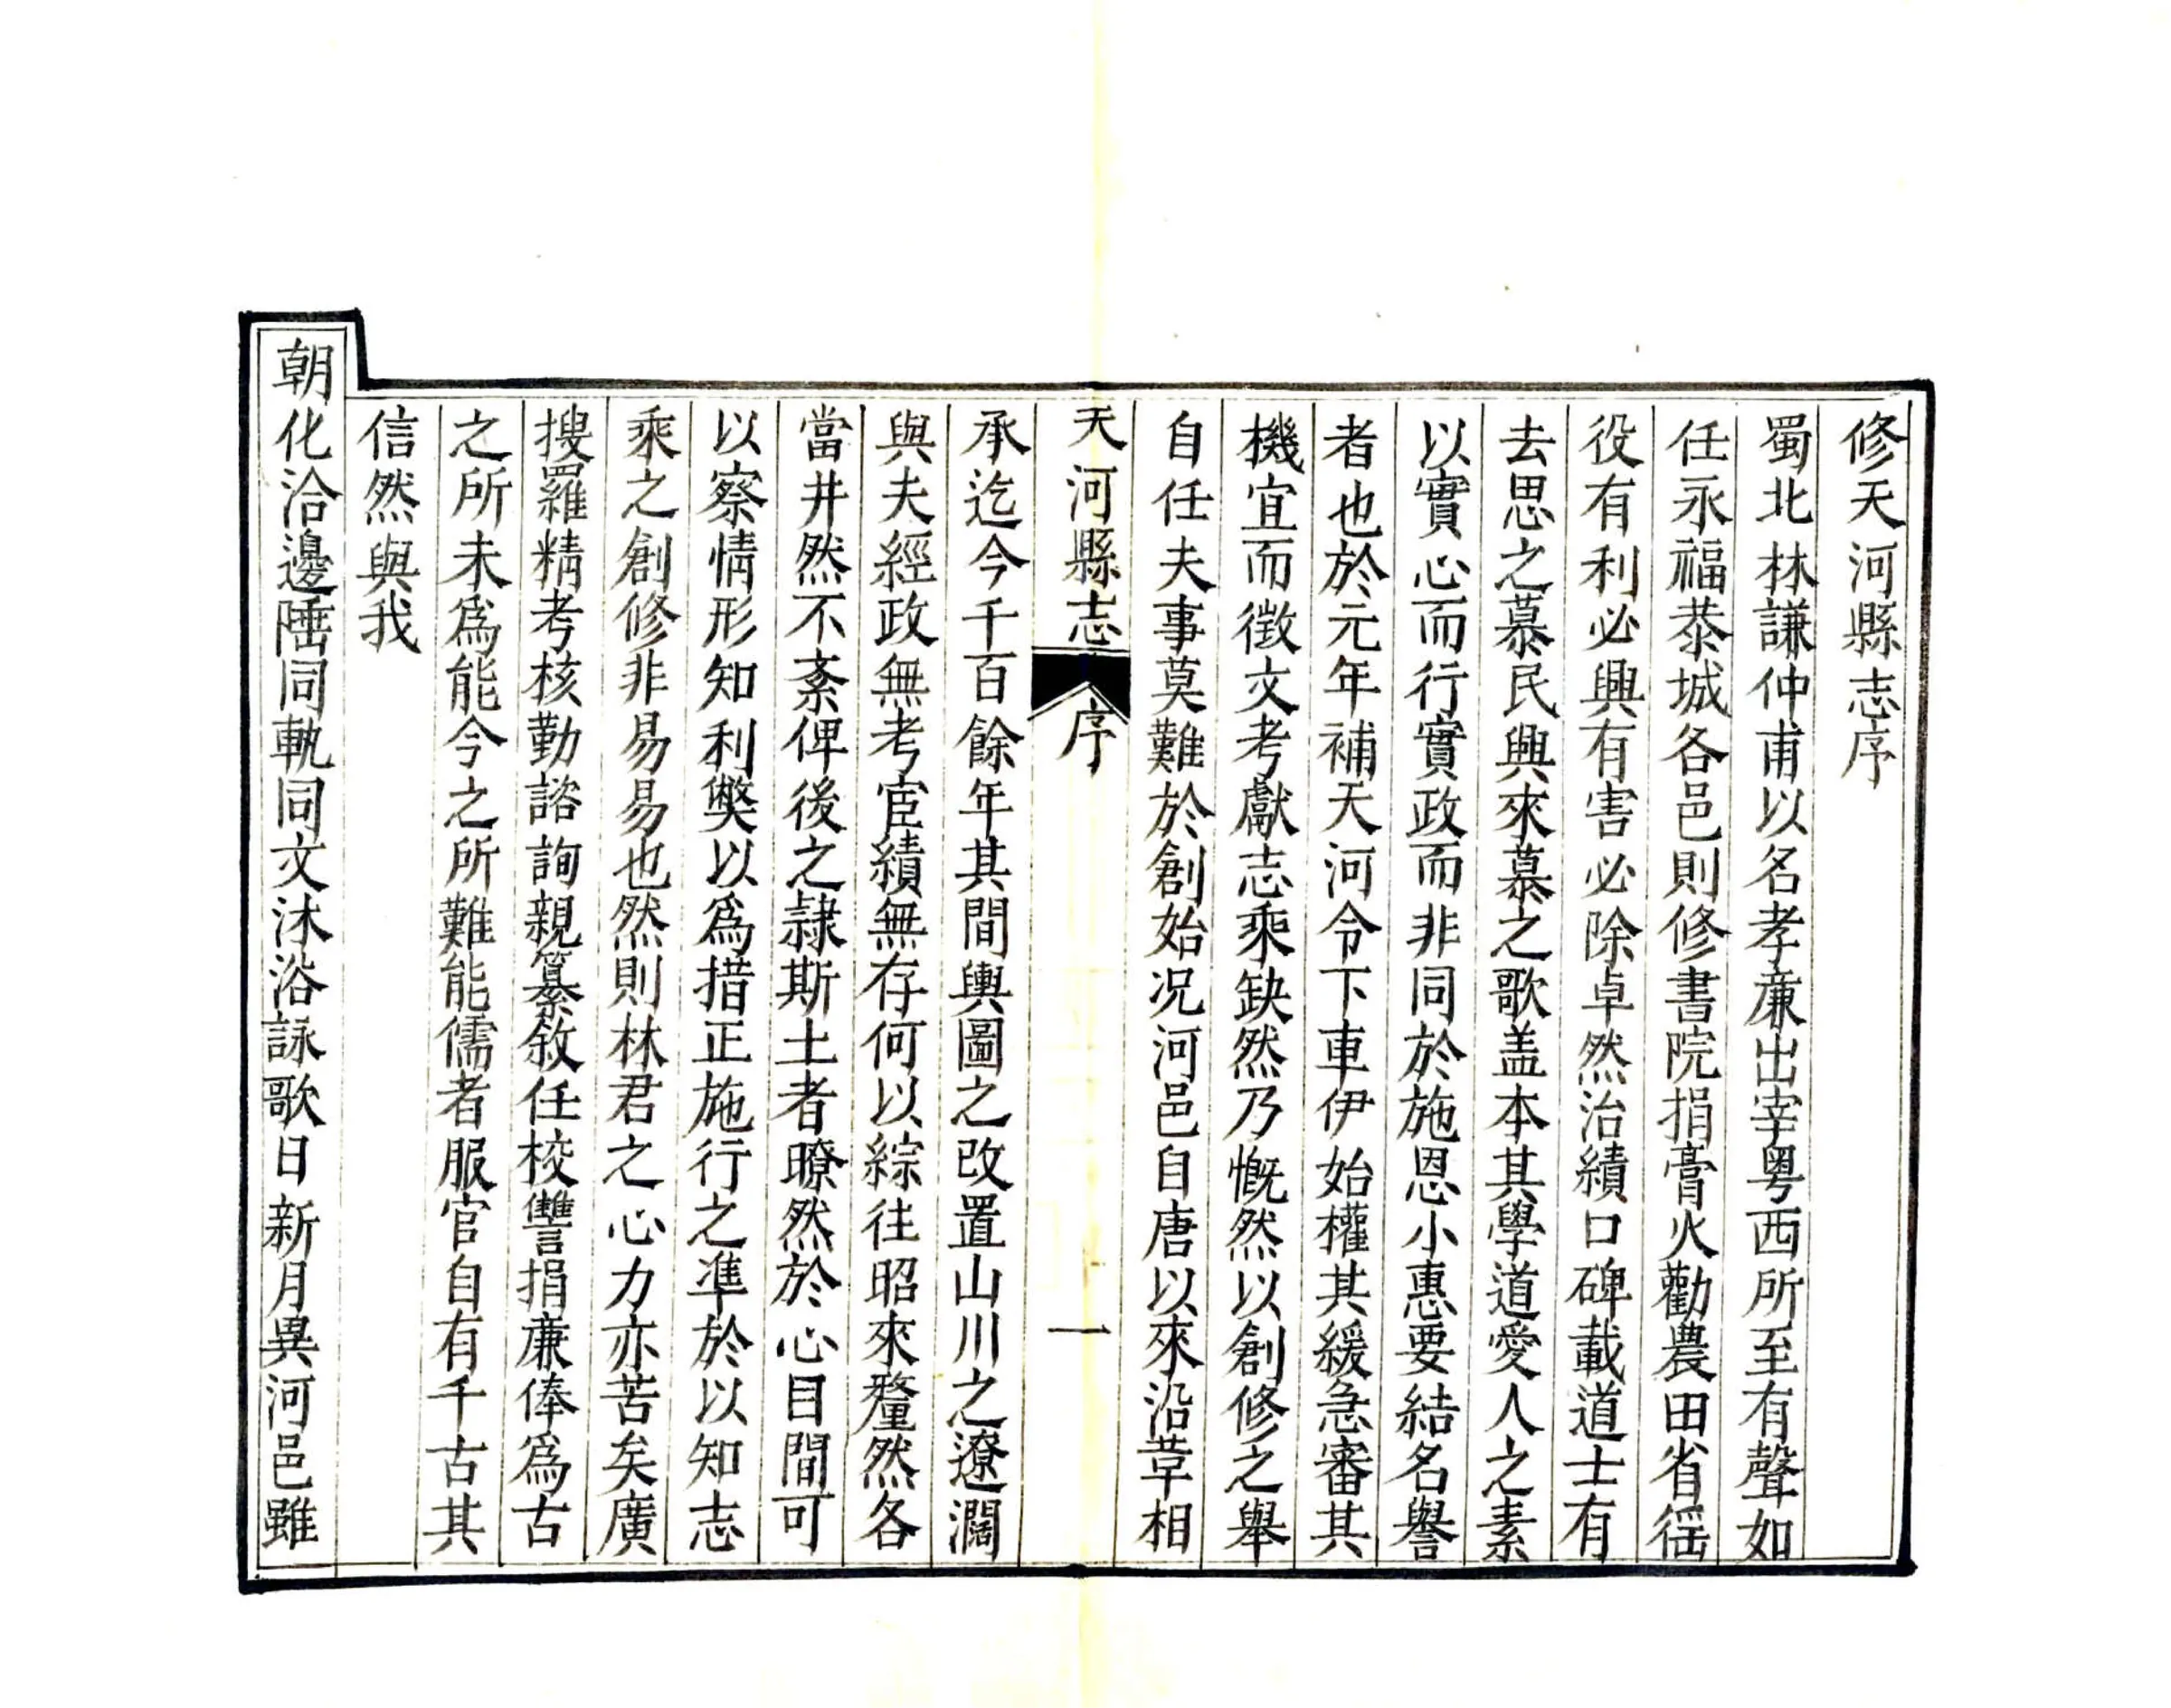 修天河縣志序
蜀北林謙仲甫以名孝廉出宰粤西所至有聲如
任永福恭城各邑則修書院捐膏火勸農田省徭
役有利必興有害必除卓然治績口碑載道士有
去思之慕民興來慕之歌盖本其學道愛人之素
以實心而行實政而非同於施恩小惠要結名譽
者也於元年補天河令下車伊始權其緩急審其
機宜而徵文考獻志乘缺然乃慨然以創修之舉
自任夫事莫難於創始况河邑自唐以來沿革相
天河縣志 序 一
承迄今千百餘年其間輿圖之改置山川之遼濶
與夫經政無考宦績無存何以綜往昭來釐然各
當井然不紊俾後之隸斯土者瞭然於心目間可
以察情形知利獘以爲措正施行之準於以知志
乘之創修非易易也然則林君之心力亦苦矣廣
搜羅精考核勤諮詢親纂敘任校讐捐廉俸爲古
之所未爲能今之所難能儒者服官自有千古其
信然與我
朝化洽邊陲同軌同文沐浴詠歌日新月異河邑雖